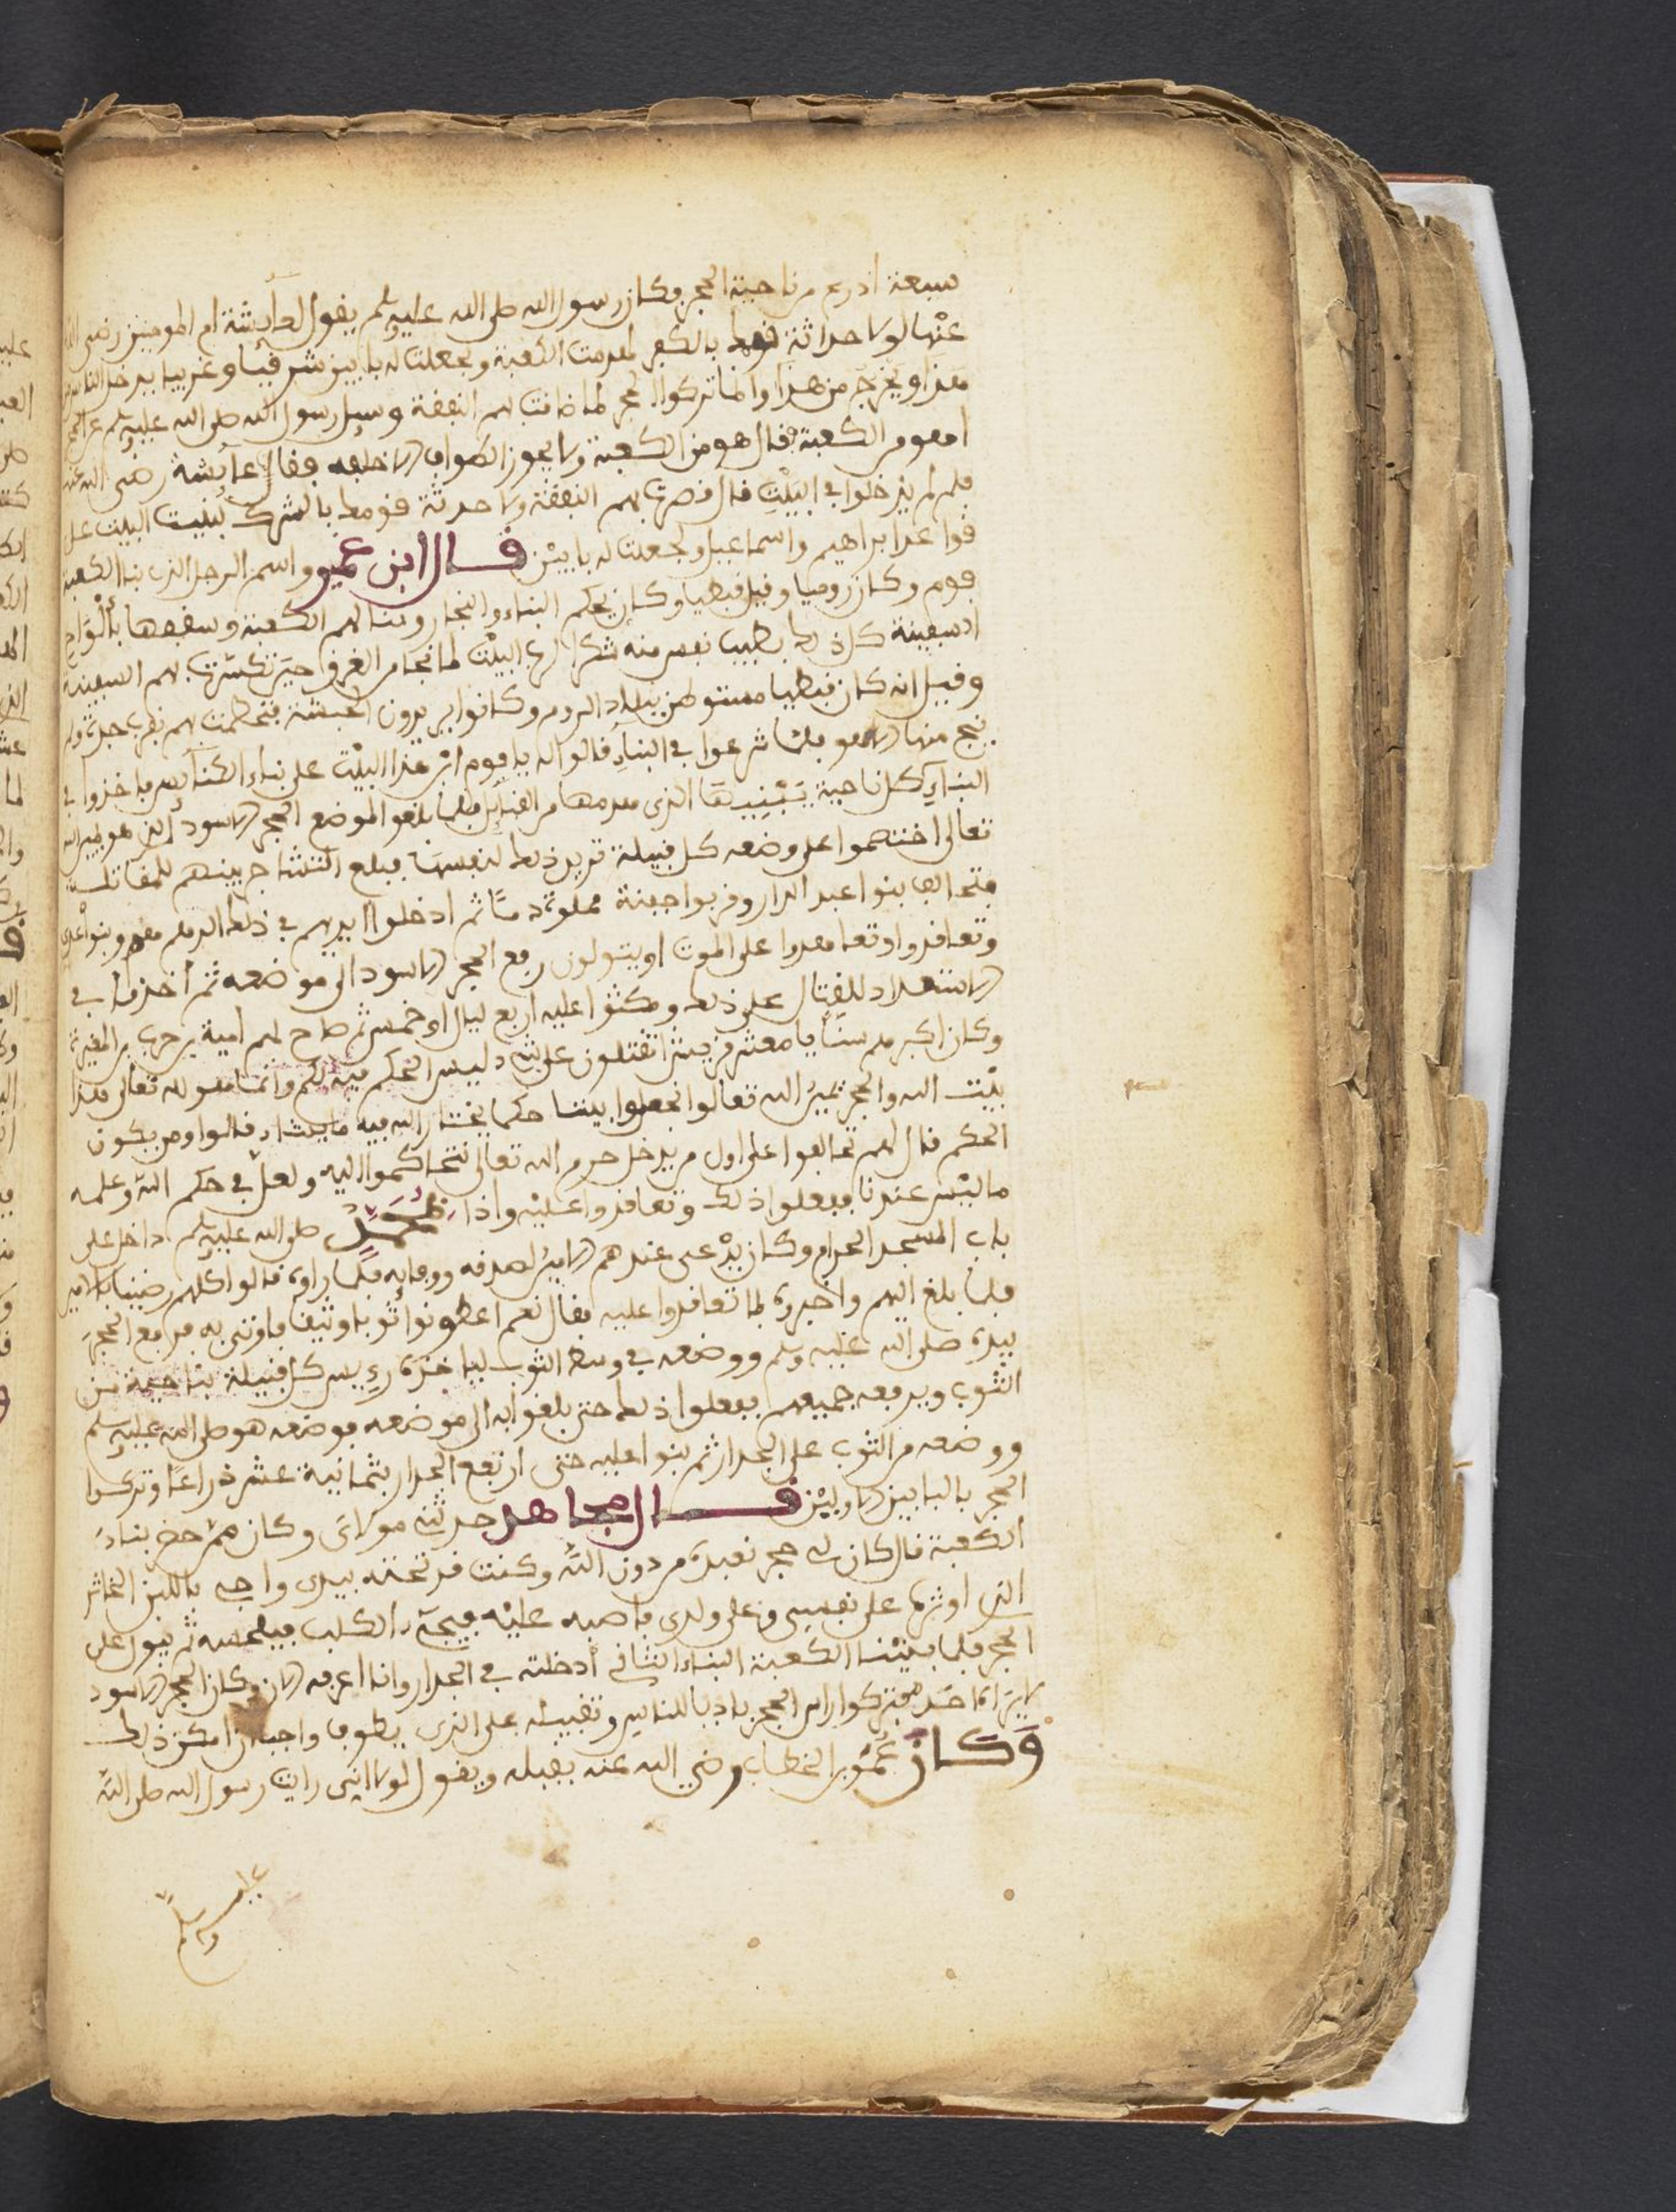 سبعة اذرع من ناحية الحجر وكان رسول الله صلى الله عليه وسلم يقول لعآيشة ام المومنين رضى الله
عنْها لولا حداثة قومك بالكفر لهدمت الكعبة وجعلت له بابين شرقيا وغربيا يدخل الناس من
هذا ويخرج من هذا وانما تركوا الحجر لما ضاقت بهم النفقة وسيل رسول الله صلى الله عليه وسلم عن الحجر
اهو من الكعبة فقال هو من الكعبة ولا يجوز الطواف الا خلفه فقالت عآيشة رضى الله عنها
فلم لم يدخلوا فى البيْت قال قصرت بهم النفقة ولا حدثة قومك بالشرك لبنيت البيت على
قواعد ابراهيم واسماعيل ولجعلت له بابيْن قال ابن عمير واسم الرجل الذى بنا الكعبة
فوم وكان روميا وقيل قبطيا وكان يحكم البناء والنجار وبنا لهم الكعبة وسقفها بألواح
السفينة كل ذلك بطيب نفس منه شكرا لرب البيْت لما نجا من الغرق حين تكسّرت بهم السفينة
وقيل انه كان قبطيا مستوطن ببلاد الروم وكانوا يريدون الحبشة فتحطمت بهم بقرب جدة ولم
ينج منها الا هو فلما شرعوا فى البنآء قالوا له يا فوم ابْن هذا البيْت على بناء الكنآيس فاخذوا فى
البنآء كل ناحية تبْنيها الذى هدمها من القبآيل فلما بلغوا لموضع الحجر الاسود الذى هو يمين الله
تعالى اختصموا على وضعه كل قبيلة تريد ذلك لنفسها فبلغ التشاجر بينهم للمقاتلة
فتحالف بنوا عبد الدار وقربوا جفنة مملوة دمًا ثم ادخلوا ايديهم فى ذلك الدم هم وبنوا عدى
وتعاقدوا وتعاهدوا على الموت او يتولون رفع الحجر الاسود الى موضعه ثم أخذوا فى
الاستعداد للقتال على ذلك ومكثوا عليه اربع ليال او خمس ثم صاح لهم امية بن حرب بن المغيرة
وكان اكبرهم سنًا يا معشر قريش اتقتتلون على شىء ليس الحكم فيه لكم وانما هو لله تعالى هذا
بيْت الله والحجر يمين الله تعالوا نجعلوا بيننا حكما يختار الله فيه ما يشاء قالوا ومن يكون
الحكم قال لهم تحالفوا على اول من يدخل حرم الله تعالى نتحاكموا اليه ولعل فى حكم الله وعلمه
ما ليْس عندنا ففعلوا ذلك وتعاقدوا عليْه واذا بمُحَمَّدٍ صلى الله عليه وسلم داخل على
باب المسجد الحرام وكان يدْعى عندهم الامين لصدقه ووفايه فلما راوه قالوا كلهم رضينا بالامين
فلما بلغ اليهم واخبروه لما تعاقدوا عليه فقال نعم اعطونوا ثوبا وثيقا فاوتى به فرفع الحجر
بيده صلى الله عليه وسلم ووضعه فى وسط الثوب لياخذه رءيس كل قبيلة بناحية من
الثوب ويرفعه جميعهم ففعلوا ذلك حتى بلغوا به الى موضعه فوضعه هو صلى الله عليه وسلم
ووضعه من الثوب على الجدار ثم بنوا عليه حتى ارتفع الجدار بثمانية عشر ذراعًا وتركوا
الحجر بالبابين الاوليْن قال مجاهد حدثنى مولاى وكان ممن حضر بناء
الكعبة قال كان لى حجر نعبده من دون الله وكنت قد نحتته بيدى واجىء باللبن الخاثر
الذى اوثره على نفسى وعلى ولدى فاصبه عليْه فيجىء الكلب فيلحسه ثم يبول على
الحجر فلما بنيْنا الكعبة البناء الثانى أدخلته فى الجدار وانا اعرفه الان وكان الحجر الاسود
لا يراه احد فتركوا راس الحجر باديا للناس وتقبيله على الذى يطوف واجب ان امكن ذلك
وَكَانَ عُمَر بن الخطاب رضي الله عنه يقبله ويقول لولا انى رايت رسول الله صلى الله
عليه
وسلم